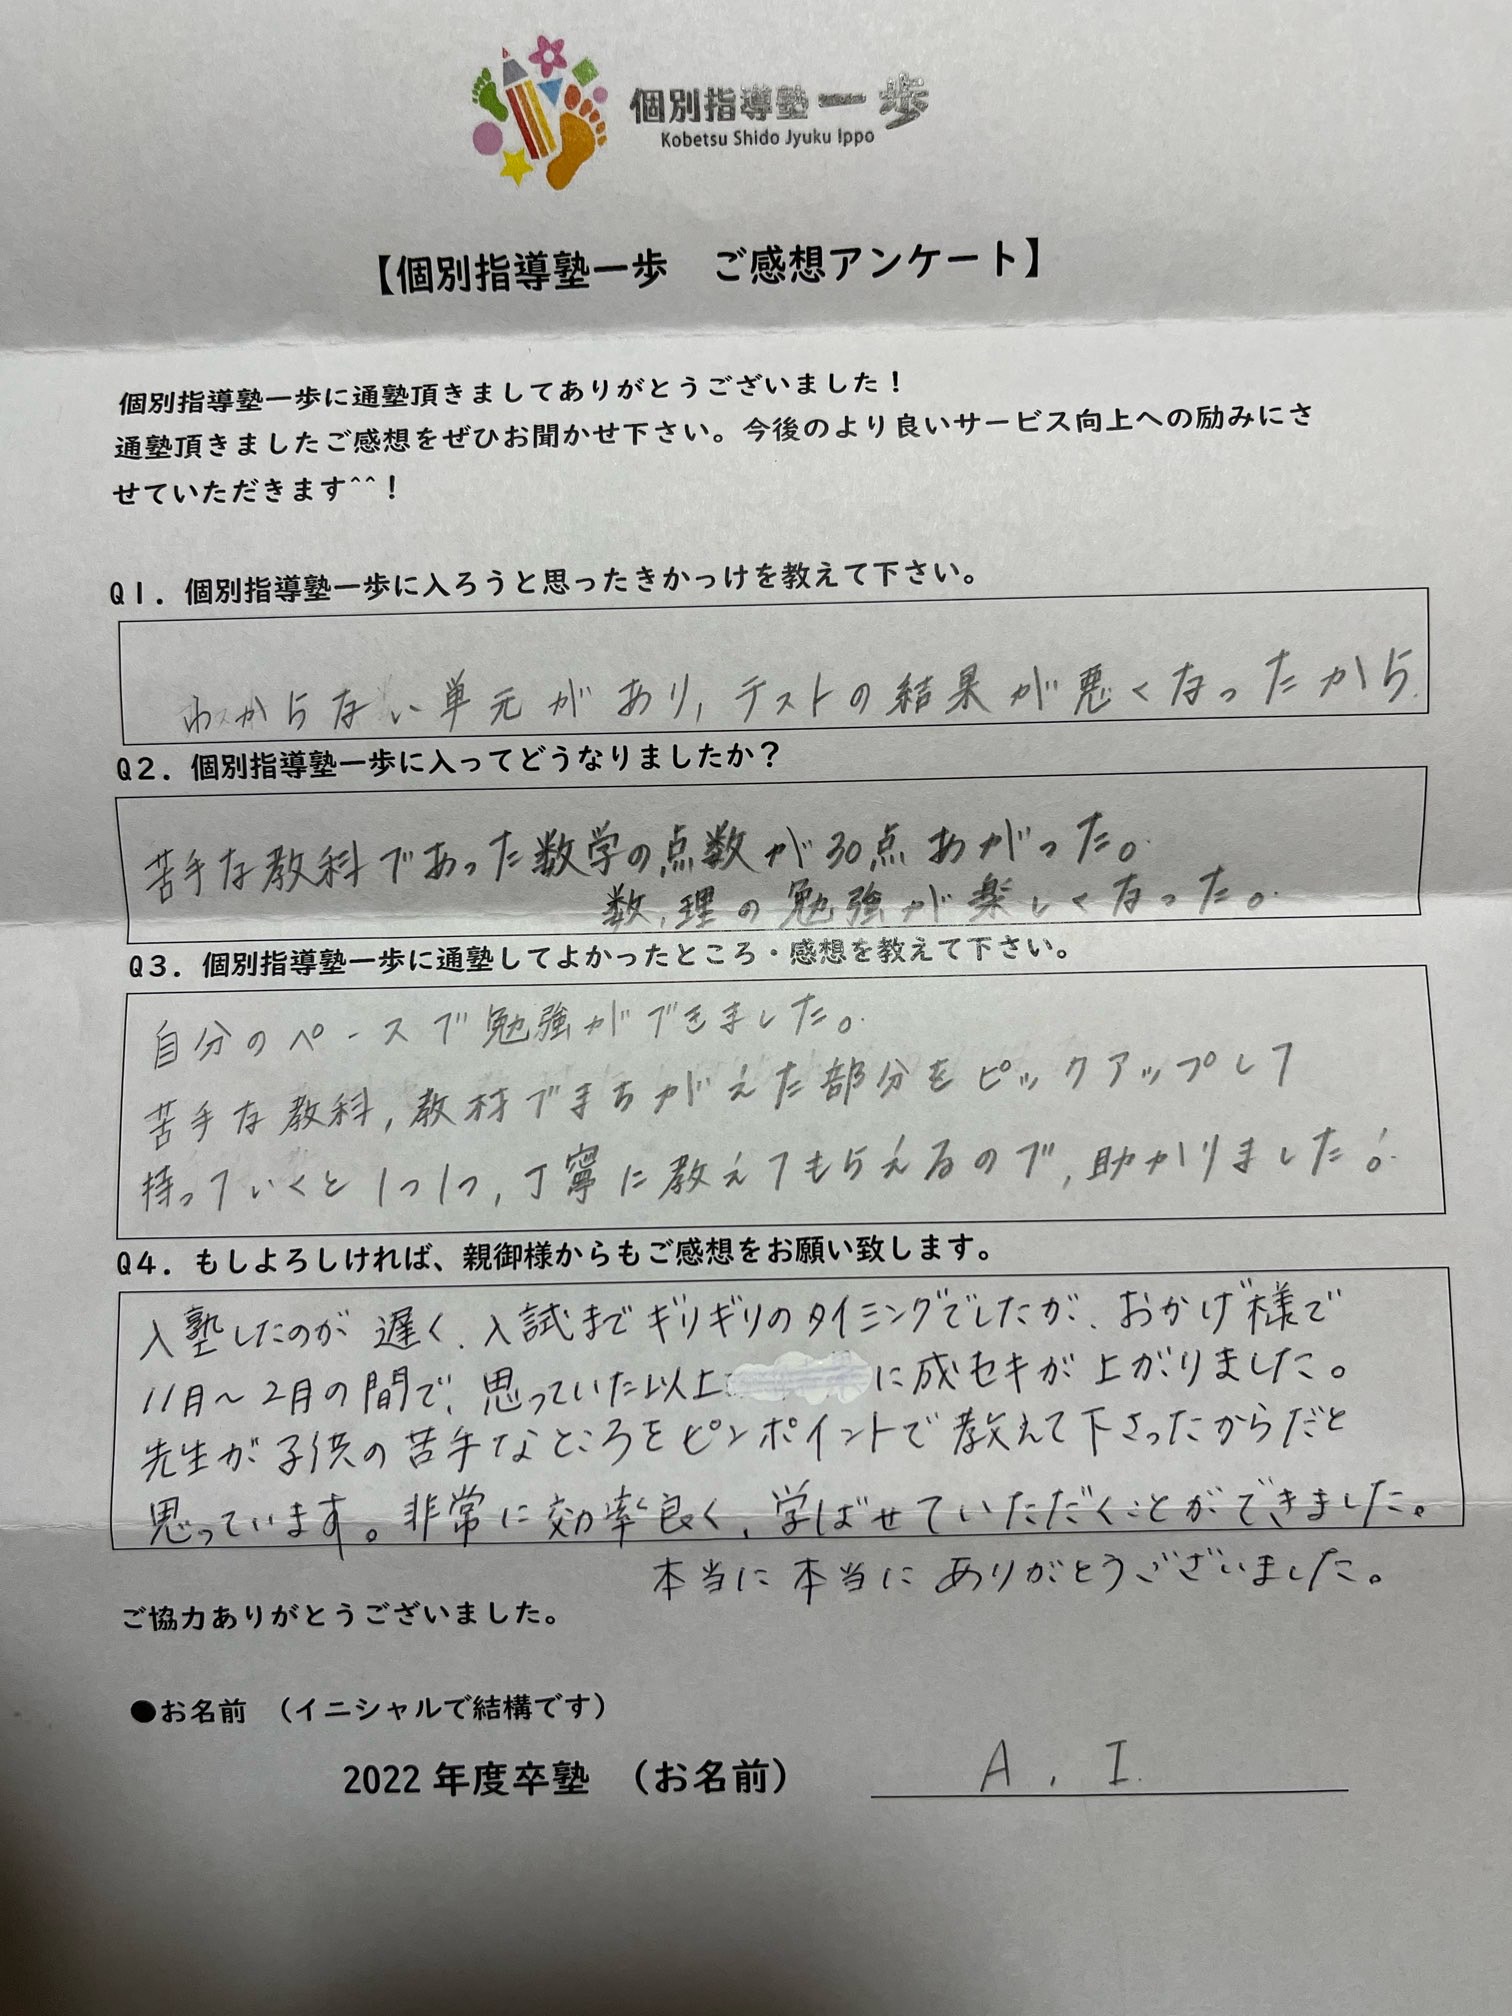 個別指導塾一歩
Kobetsu Shido Jyuku Ippo
【個別指導塾一歩　ご感想アンケート】
個別指導塾一歩に通塾頂きましてありがとうございました！
通塾頂きましたご感想をぜひお聞かせ下さい。今後のより良いサービス向上への励みにさ
せていただきます^^！
Q1．個別指導塾一歩に入ろうと思ったきかっけを教えて下さい。
わからない単元があり,テストの結果が悪くなったから.
Q2．個別指導塾一歩に入ってどうなりましたか？
苦手な教科であった数学の点数が30点あがった。
数,理の勉強が楽しくなった。
Q3．個別指導塾一歩に通塾してよかったところ・感想を教えて下さい。
自分のペースで勉強ができました。
苦手な教科,教材でまちがえた部分をピックアップして
持っていくと1つ1つ,丁寧に教えてもらえるので,助かりました!
Q4．もしよろしければ、親御様からもご感想をお願い致します。
入塾したのが遅く、入試までギリギリのタイミングでしたが、おかげ様で
11月〜2月の間で、思っていた以上に成セキが上がりました。
先生が子供の苦手なところをピンポイントで教えて下さったからだと
思っています。非常に効率良く、学ばせていただくことができました。
本当に本当にありがとうございました。
ご協力ありがとうございました。
●お名前　（イニシャルで結構です）
2022年度卒塾　（お名前）　A.I.